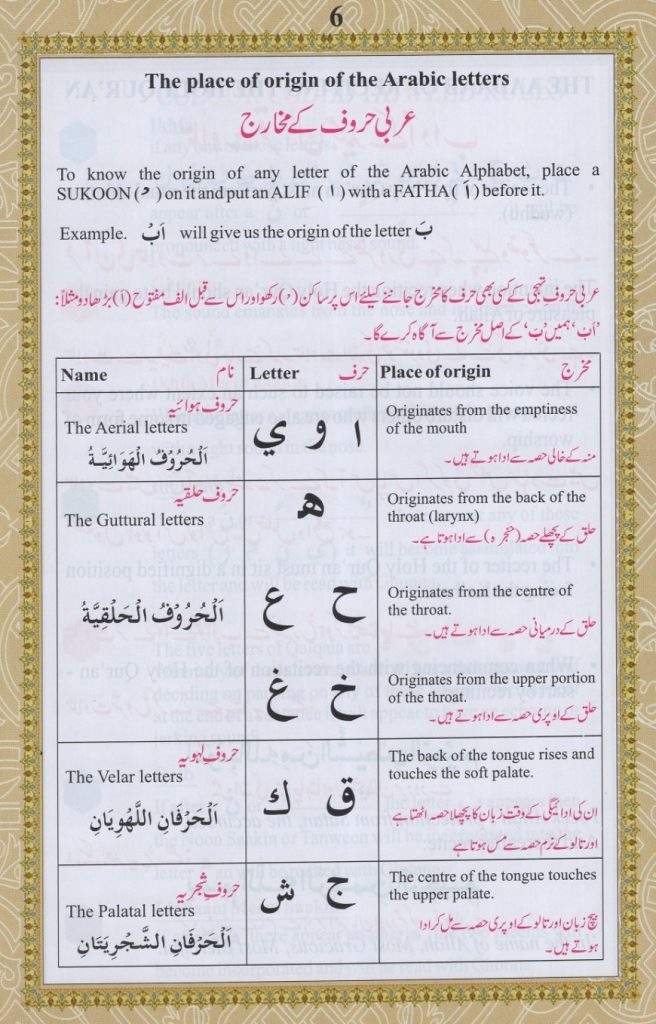 6
The place of origin of the Arabic letters
عربی حروف کے مخارج
To know the origin of any letter of the Arabic Alphabet, place a
SUKOON ( ْ ) on it and put an ALIF ( ا ) with a FATHA ( اَ ) before it.
Example. اَبْ will give us the origin of the letter بَ
عربی حروفِ تہجی کے کسی بھی حرف کا مخرج جاننے کیلئے اس پر ساکن ( ْ ) رکھو اور اس سے قبل الف مفتوح (اَ) بڑھا دو مثلاً:
'اَبْ' ہمیں 'بَ' کے اصل مخرج سے آگاہ کرے گا۔
Name نام Letter حرف Place of origin مخرج
حروف ہوائیہ
The Aerial letters
اَلْحُرُوْفُ الْهَوَائِيَّةُ
ا و ي
Originates from the emptiness
of the mouth
منہ کے خالی حصہ سے ادا ہوتے ہیں۔
حروف حلقیہ
The Guttural letters
اَلْحُرُوْفُ الْحَلْقِيَّةُ
ه
Originates from the back of the
throat (larynx)
حلق کے پچھلے حصہ (حنجرہ) سے ادا ہوتا ہے۔
ح ع
Originates from the centre of
the throat.
حلق کے درمیانی حصہ سے ادا ہوتے ہیں۔
خ غ
Originates from the upper portion
of the throat.
حلق کے اوپری حصہ سے ادا ہوتے ہیں۔
حروفِ لہویہ
The Velar letters
اَلْحَرْفَانِ اللَّهْوِيَانِ
ق ك
The back of the tongue rises and
touches the soft palate.
اِن کی ادائیگی کے وقت زبان کا پچھلا حصہ اٹھتا ہے
اور تالو کے نرم حصہ سے مس ہوتا ہے
حروفِ شجریہ
The Palatal letters
اَلْحَرْفَانِ الشَّجْرِيَتَانِ
ج ش
The centre of the tongue touches
the upper palate.
بیچ زبان اور تالو کے اوپری حصہ سے مل کر ادا
ہوتے ہیں۔